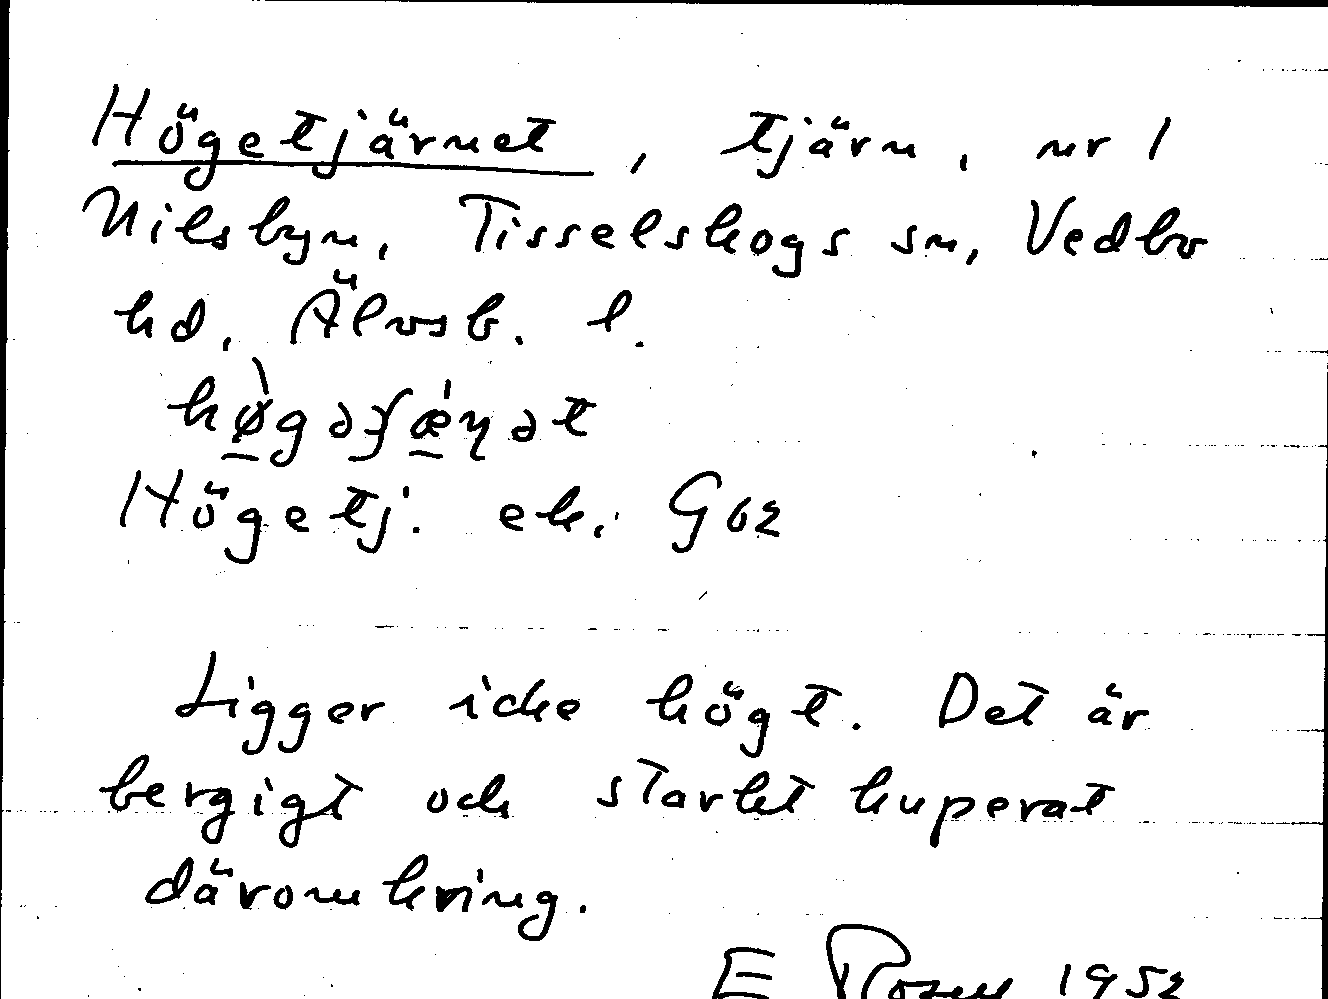 Högetjärnet, tjärn, nr 1
Nilsbyn, Tisselskogs sn, Vedbo
hd, Älvsb. l.
Högetj. ek. G62
Ligger icke högt. Det är
bergigt och starkt kuperat
däromkring.
E Rosen 1952